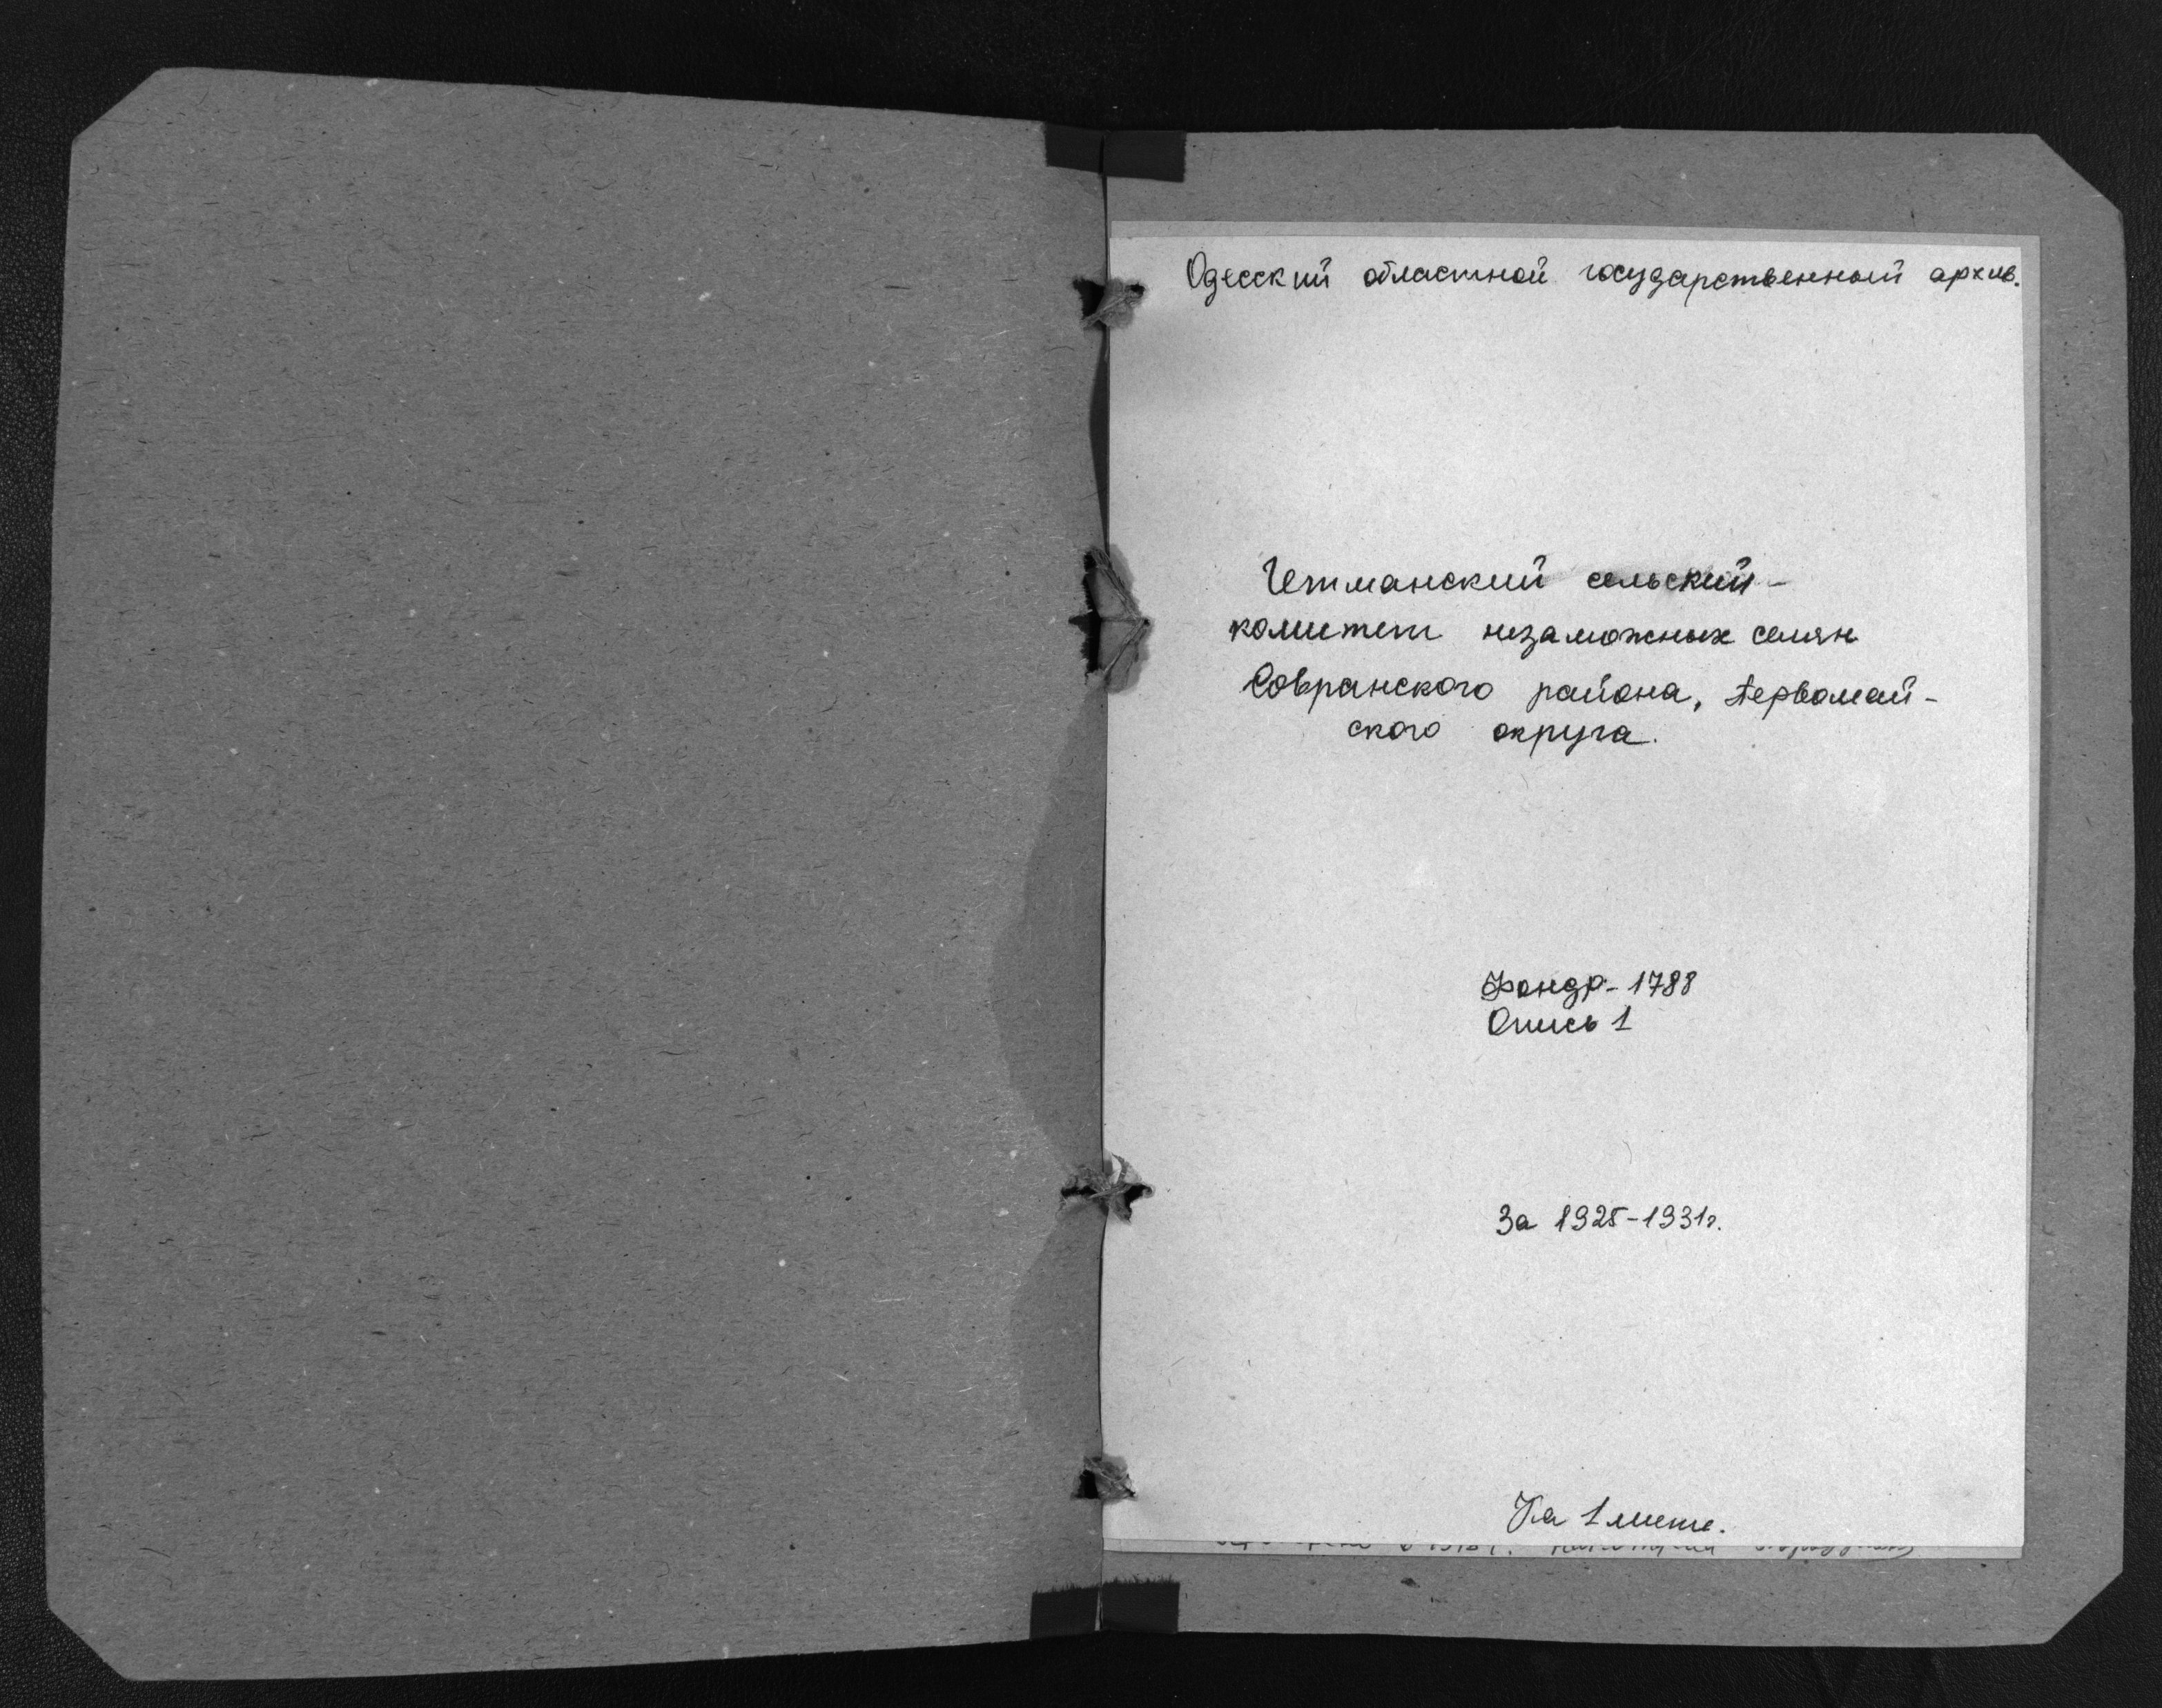 Одесский областной государственный архив.
Гетманский сельский-
комитет незаможных селян
Совранского района, Первомай-
ского округа.
Фонд Р-1788
Опись 1
За 1925-1931г.
На 1 листе.